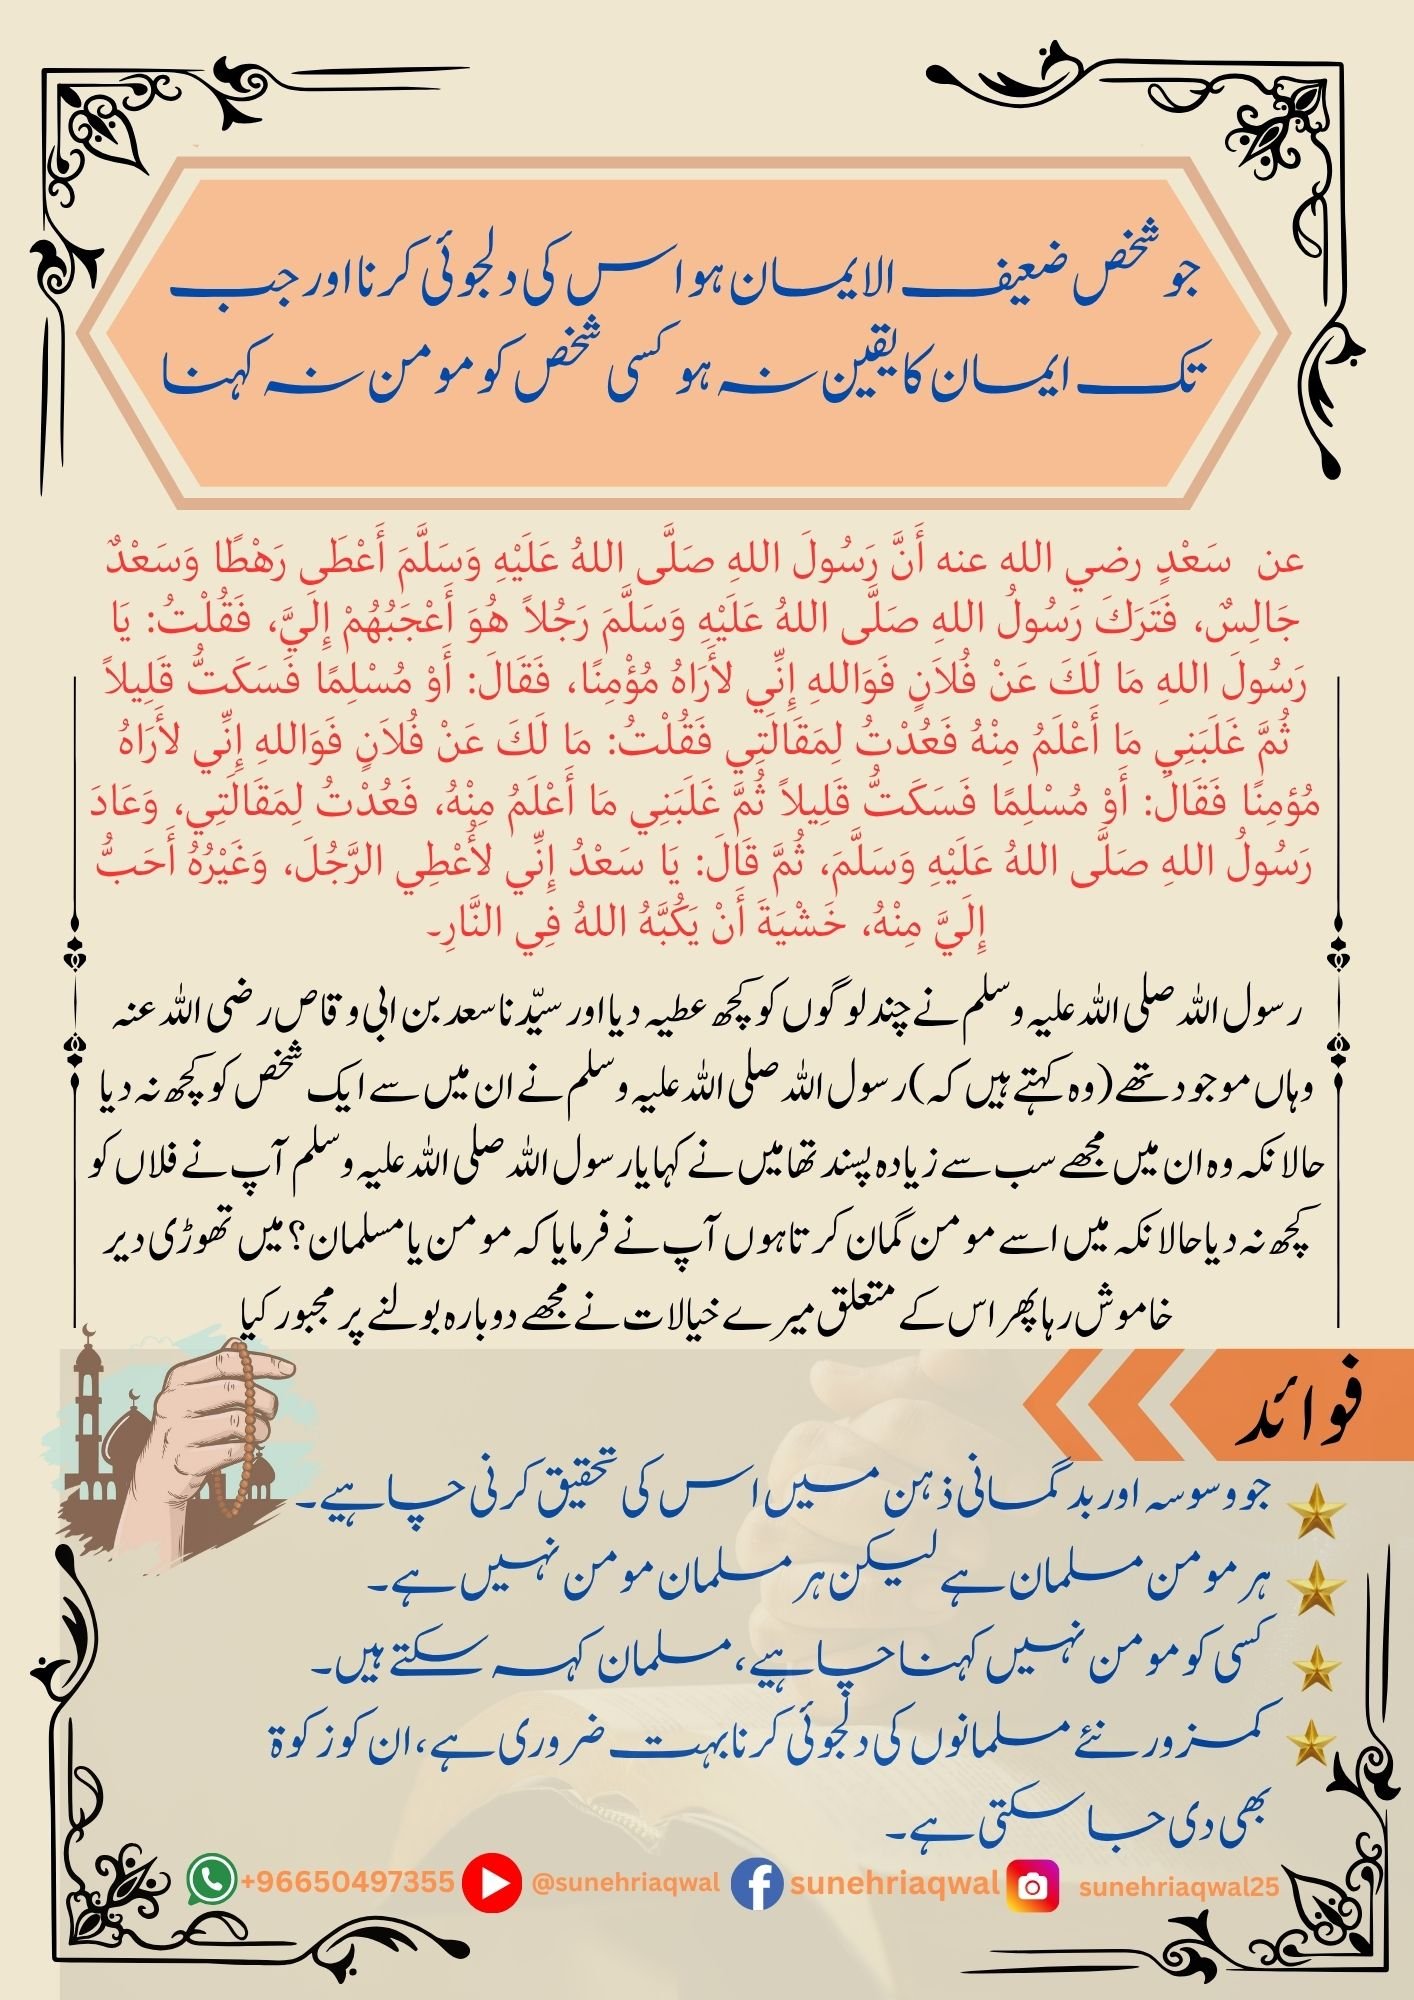 جو شخص ضعیف الایمان ہو اس کی دلجوئی کرنا اور جب
تک ایمان کا یقین نہ ہو کسی شخص کو مومن نہ کہنا
عن سَعْدٍ رضي الله عنه أَنَّ رَسُولَ اللهِ صَلَّى اللهُ عَلَيْهِ وَسَلَّمَ أَعْطَى رَهْطًا وَسَعْدٌ
جَالِسٌ، فَتَرَكَ رَسُولُ اللهِ صَلَّى اللهُ عَلَيْهِ وَسَلَّمَ رَجُلاً هُوَ أَعْجَبُهُمْ إِلَيَّ، فَقُلْتُ: يَا
رَسُولَ اللهِ مَا لَكَ عَنْ فُلاَنٍ فَوَاللهِ إِنِّي لأَرَاهُ مُؤْمِنًا، فَقَالَ: أَوْ مُسْلِمًا فَسَكَتُّ قَلِيلاً
ثُمَّ غَلَبَنِي مَا أَعْلَمُ مِنْهُ فَعُدْتُ لِمَقَالَتِي فَقُلْتُ: مَا لَكَ عَنْ فُلاَنٍ فَوَاللهِ إِنِّي لأَرَاهُ
مُؤمِنًا فَقَالَ: أَوْ مُسْلِمًا فَسَكَتُّ قَلِيلاً ثُمَّ غَلَبَنِي مَا أَعْلَمُ مِنْهُ، فَعُدْتُ لِمَقَالَتِي، وَعَادَ
رَسُولُ اللهِ صَلَّى اللهُ عَلَيْهِ وَسَلَّمَ، ثُمَّ قَالَ: يَا سَعْدُ إِنِّي لأُعْطِي الرَّجُلَ، وَغَيْرُهُ أَحَبُّ
إِلَيَّ مِنْهُ، خَشْيَةَ أَنْ يَكُبَّهُ اللهُ فِي النَّارِ۔
رسول اللہ صلی اللہ علیہ وسلم نے چند لوگوں کو کچھ عطیہ دیا اور سیّدنا سعد بن ابی وقاص رضی اللہ عنہ
وہاں موجود تھے (وہ کہتے ہیں کہ) رسول اللہ صلی اللہ علیہ وسلم نے ان میں سے ایک شخص کو کچھ نہ دیا
حالانکہ وہ ان میں مجھے سب سے زیادہ پسند تھا میں نے کہا یا رسول اللہ صلی اللہ علیہ وسلم آپ نے فلاں کو
کچھ نہ دیا حالانکہ میں اسے مومن گمان کرتا ہوں آپ نے فرمایا کہ مومن یا مسلمان؟ میں تھوڑی دیر
خاموش رہا پھر اس کے متعلق میرے خیالات نے مجھے دوبارہ بولنے پر مجبور کیا
فوائد
جو وسوسہ اور بدگمانی ذہن میں اس کی تحقیق کرنی چاہیے۔
ہر مومن مسلمان ہے لیکن ہر مسلمان مومن نہیں ہے۔
کسی کو مومن نہیں کہنا چاہیے، مسلمان کہہ سکتے ہیں۔
کمزور نئے مسلمانوں کی دلجوئی کرنا بہت ضروری ہے، ان کو زکوۃ
بھی دی جا سکتی ہے۔
+96650497355 @sunehriaqwal sunehriaqwal sunehriaqwal25